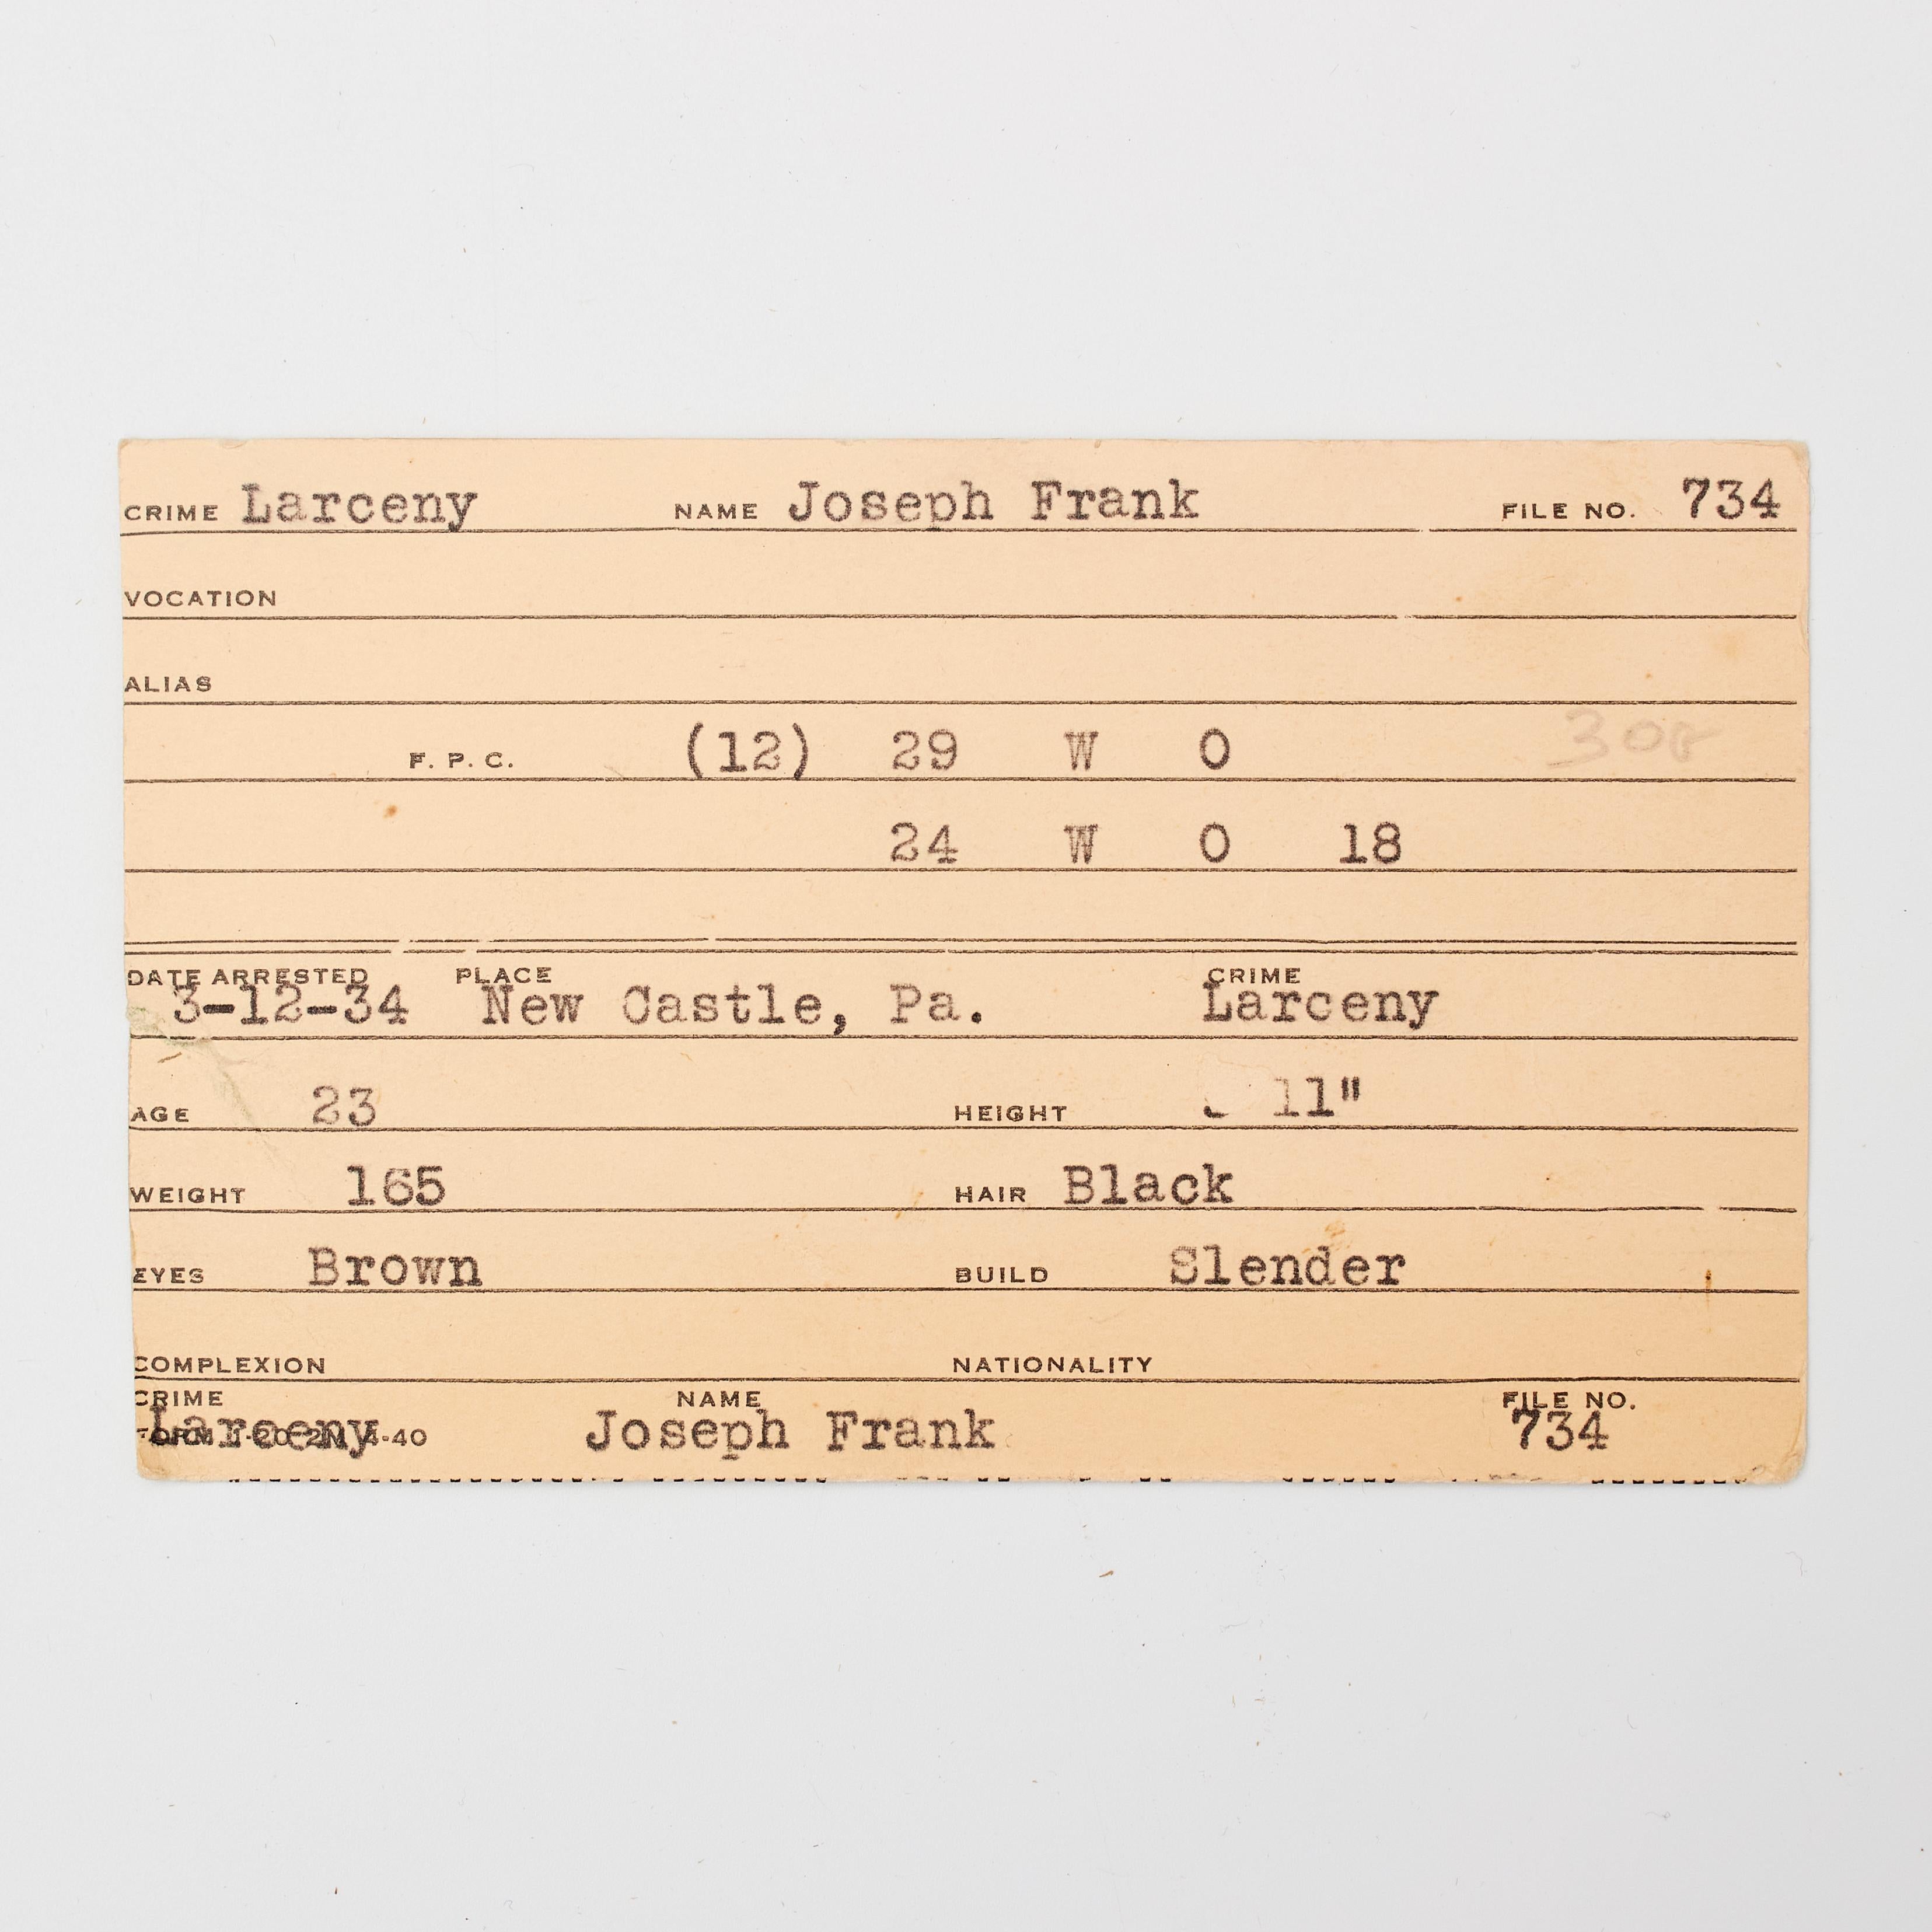 CRIME Larceny NAME Joseph Frank FILE NO. 734
VOCATION
ALIAS
F. P. C. (12) 29 W O
24 W O 18
DATE ARRESTED PLACE CRIME
3-12-34 New Castle, Pa. Larceny
AGE 23 HEIGHT 11"
WEIGHT 165 HAIR Black
EYES Brown BUILD Slender
COMPLEXION NATIONALITY
CRIME NAME FILE NO.
Larceny Joseph Frank 734